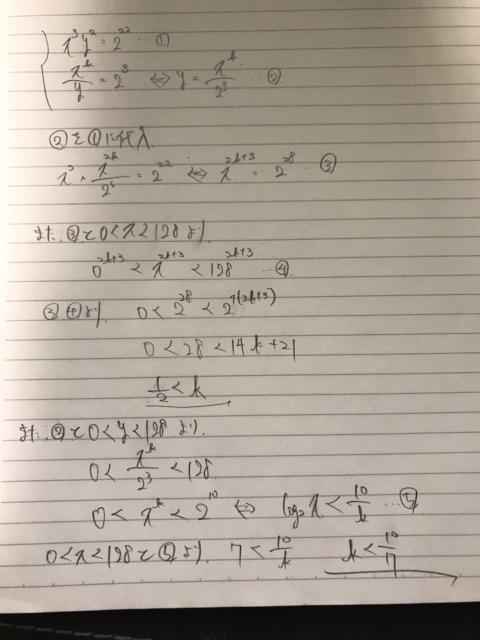 x³y² = 2²² …①
x^k/y = 2³ ⇔ y = x^k/2³ …②
②を①に代入
x³・x^{2k}/2⁶ = 2²² ⇔ x^{2k+3} = 2²⁸ …③
また ③と0<x<128より
0^{2k+3} < x^{2k+3} < 128^{2k+3} …④
③④より 0 < 2²⁸ < 2^{7(2k+3)}
0 < 28 < 14k+21
1/2 < k
また ②と0<y<128より
0 < x^k/2³ < 128
0 < x^k < 2¹⁰ ⇔ log₂x < 10/k …⑤
0<x<128と⑤より 7 < 10/k k < 10/7